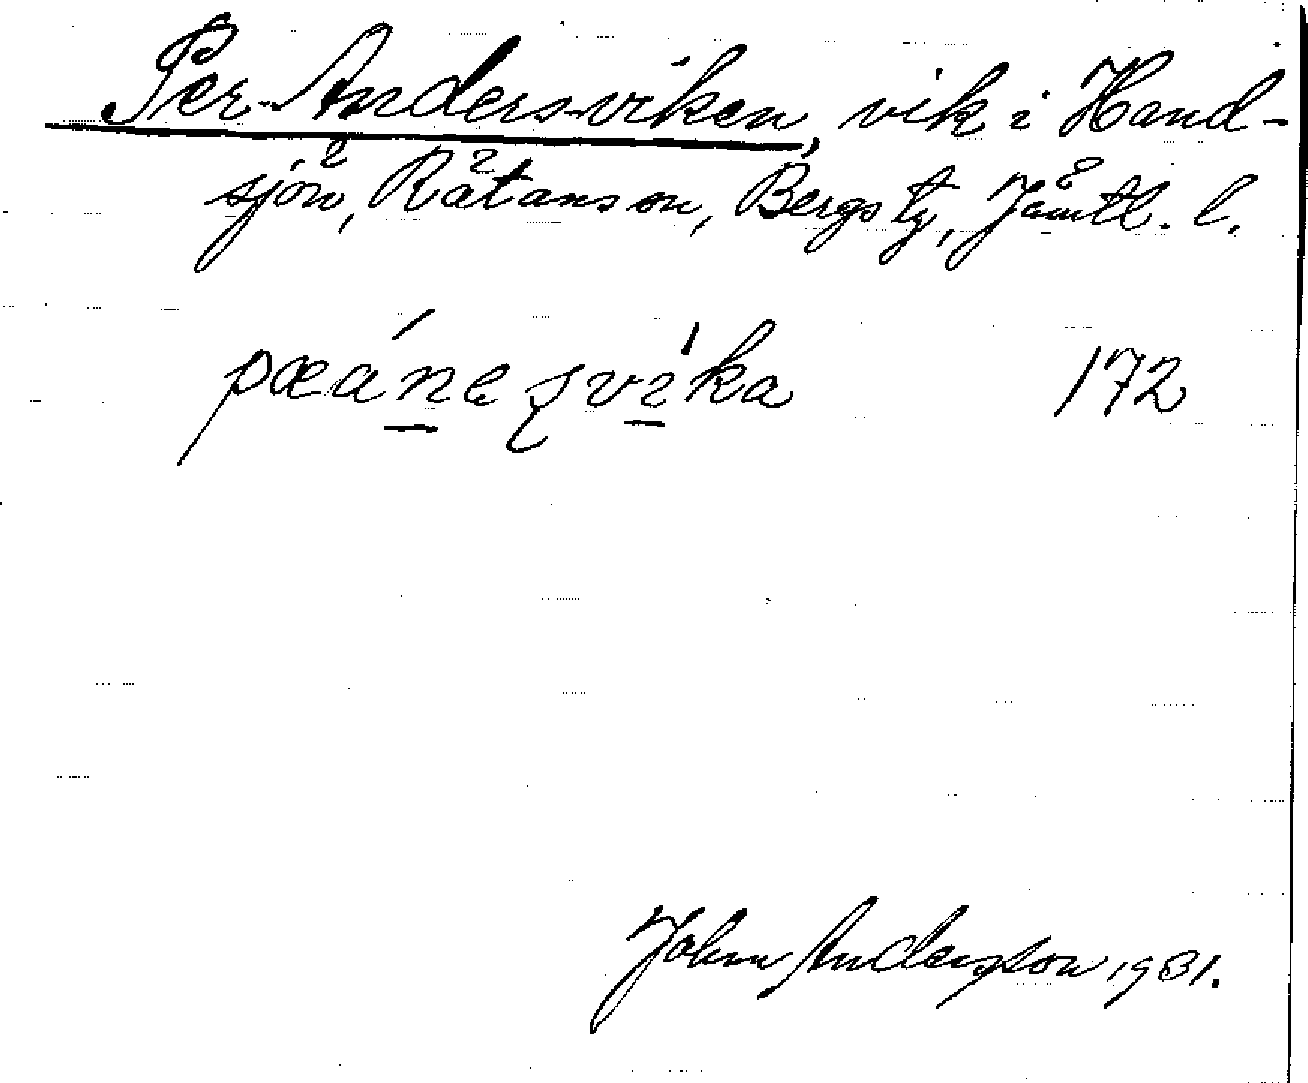 Per-Andersviken, vik i Hand-
sjön, Rätans sn, Bergs tg, Jämtl. l.
pæáne ʂvíka 172
John Andersson 1931.